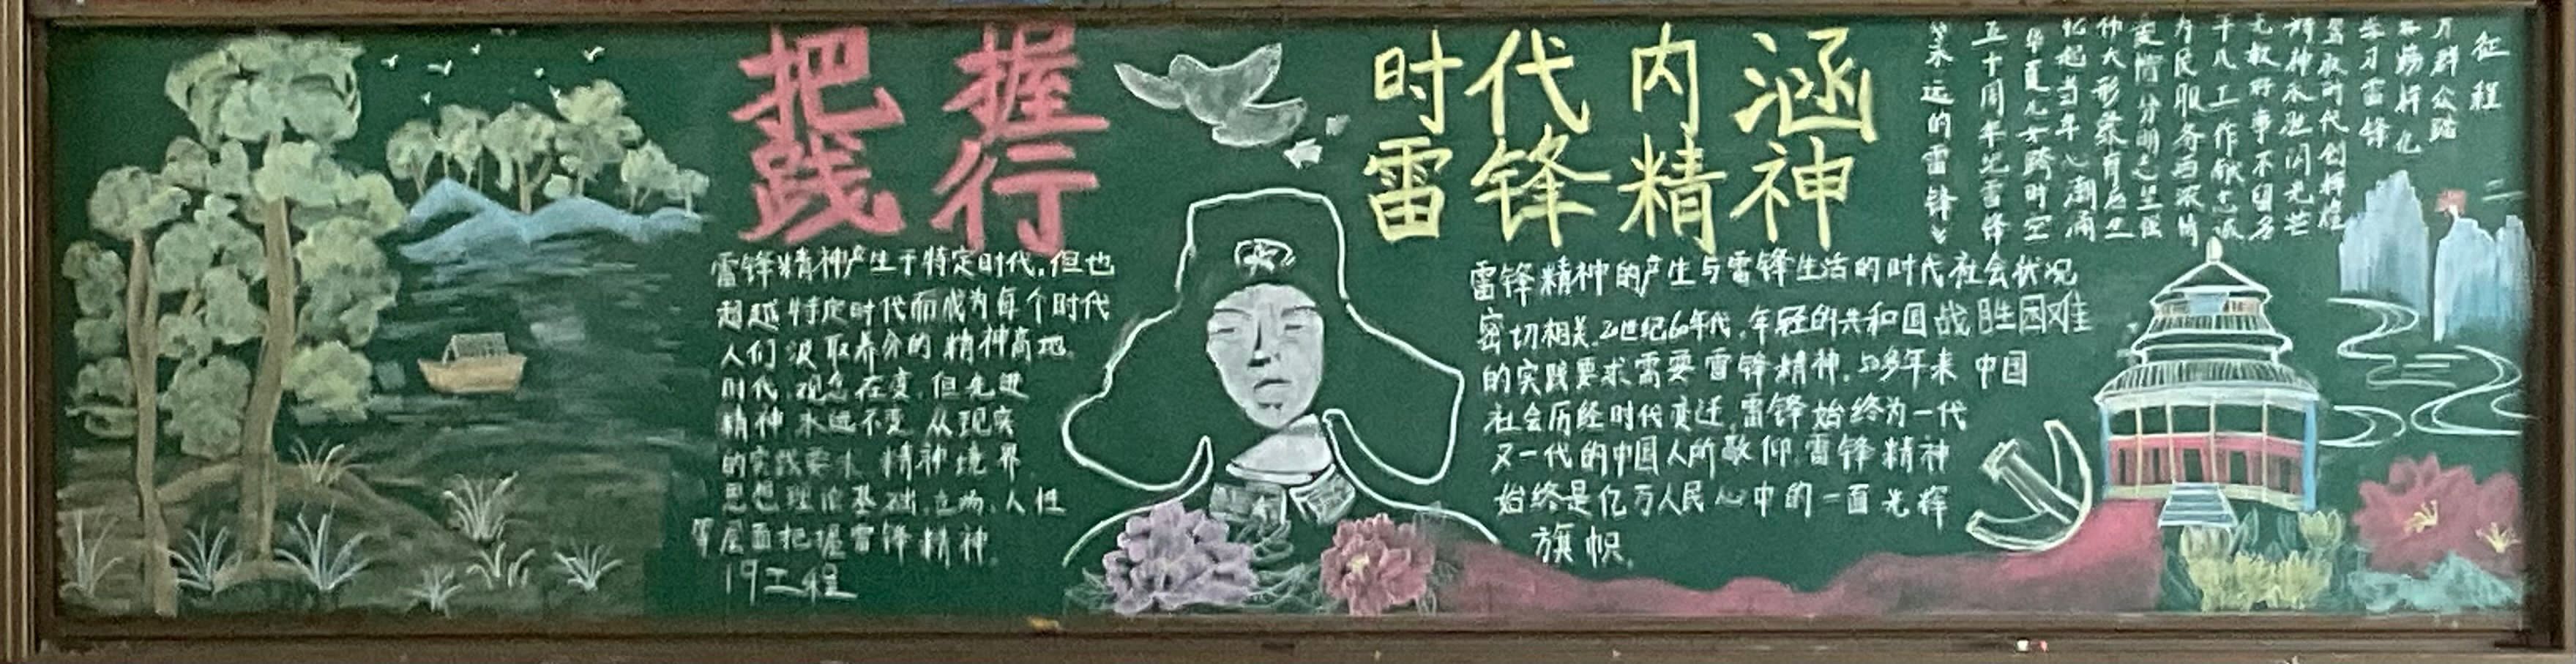 把握 时代内涵
践行 雷锋精神
雷锋精神产生于特定时代,但也
超越特定时代而成为每个时代
人们汲取养分的精神高地.
时代,观念在变,但先进
精神永远不变,从现实
的实践要求,精神境界
思想理论基础,立场,人性
等层面把握雷锋精神.
19工程
雷锋精神的产生与雷锋生活的时代社会状况
密切相关.20世纪60年代,年轻的共和国战胜困难
的实践要求需要雷锋精神.50多年来 中国
社会历经时代变迁,雷锋始终为一代
又一代的中国人所敬仰,雷锋精神
始终是亿万人民心中的一面光辉
旗帜.
永远的雷锋
五十周年忆雷锋
华夏儿女跨时空
忆起当年心潮涌
伟大形象
爱憎分明
为民服务
干八工作
无权好事不留名
精神永 闪光芒
时代创辉煌
学习雷锋
万群众踏
征程